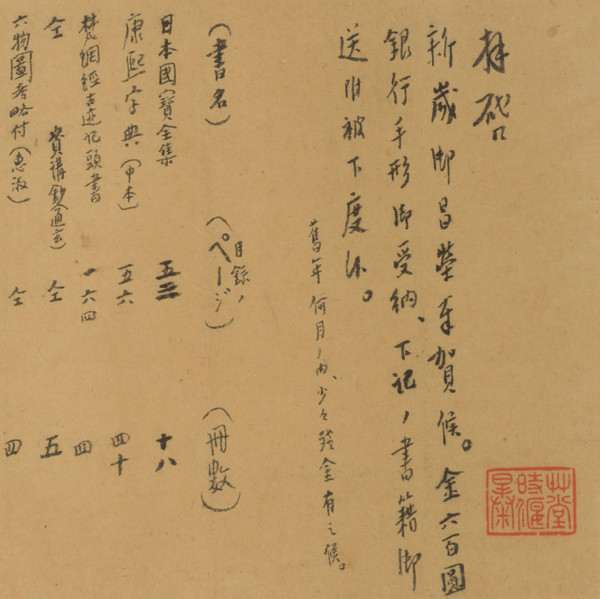 拝啓
新歳御昌榮奉賀候。金六百圓
銀行手形御受納、下記ノ書籍御
送附被下度候。
舊年何月ノ内、少々残金有之候。
(書名) (目録ノページ) (冊數)
日本國寶全集 五二 十八
康熙字典(中本) 五六 四十
梵網經古迹記頭書 一六四 四
仝 資講鈔通玄) 仝 五
六物圖考略付(惠淑) 仝 四